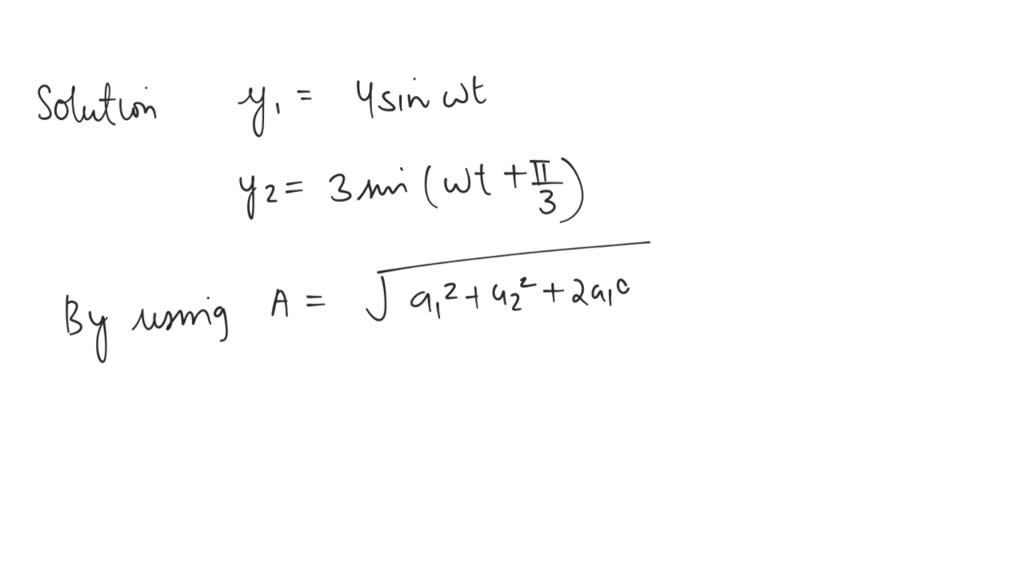 Solution y₁ = 4 sin ωt
y₂ = 3 sin (ωt + π/3)
By using A = √(a₁² + a₂² + 2a₁c